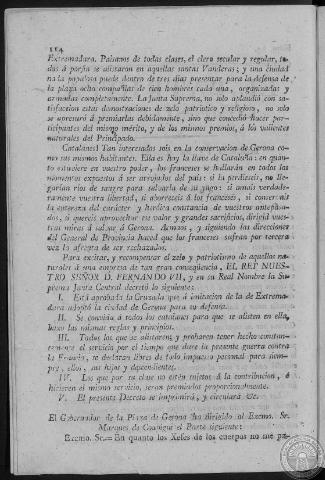 114
Extremadura. Paisanos de todas clases, el clero secular y regular, to-
dos á porfia se alistaron en aquellas santas Vanderas; y una ciudad
na la populosa puede dentro de tres dias presentar para la defensa de
la plaza ocho compañias de cien hombres cada una, organizadas y
armadas completamente. La Junta Suprema, no solo aplaudió con sa-
tisfaccion estas demostraciones de zelo patriótico y religioso, no solo
se apresuró á premiarlas debidamente, sino que concedió hacer par-
ticipantes del mismo mérito, y de los mismos premios, á los valientes
naturales del Principado.
Catalanes! Tan interesados sois en la conservacion de Gerona co-
mo sus mismos habitantes. Ella es hoy la llave de Cataluña: en quan-
to estuviere en vuestro poder, los franceses se hallarán en todos los
momentos expuestos á ser arrojados del pais: si la perdieseis, no lle-
garian rios de sangre para salvarla de su yugo: si amais verdade-
ramente vuestra libertad, si aborreceis á los franceses, si conservais
la entereza del carácter y heróica constancia de vuestros antepasa-
dos, si quereis aprovechar un valor y grandes sacrificios, dirigid vues-
tras miras á salvar á Gerona. Armaos, y siguiendo las direcciones
del General de Provincia haced que los franceses sufran por tercera
vez la afrenta de ser rechazados.
Para excitar, y recompensar el zelo y patriotismo de aquellos na-
turales á una empresa de tan gran conseqüencia, EL REY NUES-
TRO SEÑOR D. FERNANDO VII, y en su Real Nombre la Su-
prema Junta Central decretó lo siguiente:
I. Está aprobada la Cruzada que á imitacion de la de Extrema-
dura adoptó la ciudad de Gerona para su defensa.
II. Se convida á todos los catalanes para que se alisten en ella,
baxo las mismas reglas y principios.
III. Todos los que se alistaren, y probaren tener hecho constan-
temente el servicio por el tiempo que dure la presente guerra contra
la Francia, se declaran libres de todo impuesto personal para siem-
pre, ellos, sus hijos y dependientes.
IV. Los que por su clase no estén sujetos á la contribucion, é
hicieren el mismo servicio, serán premiados proporcionalmente.
V. El presente Decreto se imprimirá, y circulará &c.
El Gobernador de la Plaza de Gerona ha dirigido al Excmo. Sr.
Marques de Coupigni el Parte siguiente:
Excmo. Sr.= En quanto los Xefes de los cuerpos me pa-